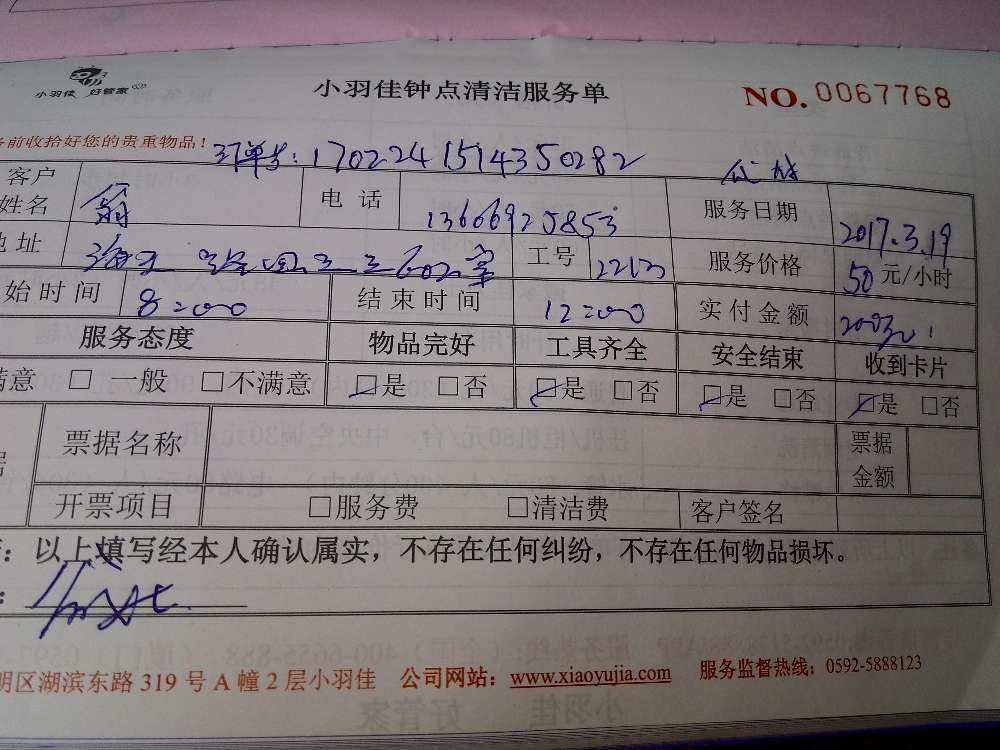 小羽佳 好管家
小羽佳钟点清洁服务单
NO. 0067768
务前收拾好您的贵重物品！
订单号：1702241514350282
客户姓名 翁 电话 13606925853 服务日期 2017.3.19
地址 602室 工号 2213 服务价格 50元/小时
始时间 8:00 结束时间 12:00 实付金额 200元
服务态度 物品完好 工具齐全 安全结束 收到卡片
满意 □一般 □不满意 □是 □否 □是 □否 □是 □否 □是 □否
据 票据名称 票据金额
开票项目 □服务费 □清洁费 客户签名
：以上填写经本人确认属实，不存在任何纠纷，不存在任何物品损坏。
明区湖滨东路 319 号 A 幢 2 层小羽佳 公司网站：www.xiaoyujia.com 服务监督热线：0592-5888123